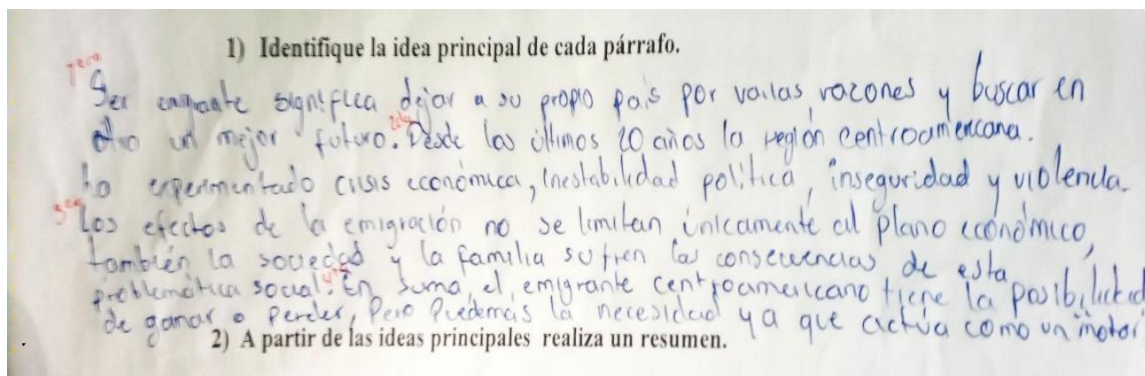 1) Identifique la idea principal de cada párrafo.
1ero
Ser emigrante significa dejar a su propio país por varias razones y buscar en
otro un mejor futuro. 2do Desde los últimos 20 años la región centroamericana.
ha experimentado crisis económica, inestabilidad política, inseguridad y violencia.
3ero Los efectos de la emigración no se limitan únicamente al plano económico,
también la sociedad y la familia sufren las consecuencias de esta
problemática social. 4to En suma, el emigrante centroamericano tiene la posibilidad
de ganar o perder, Pero la necesidad ya que actúa como un motor
2) A partir de las ideas principales realiza un resumen.